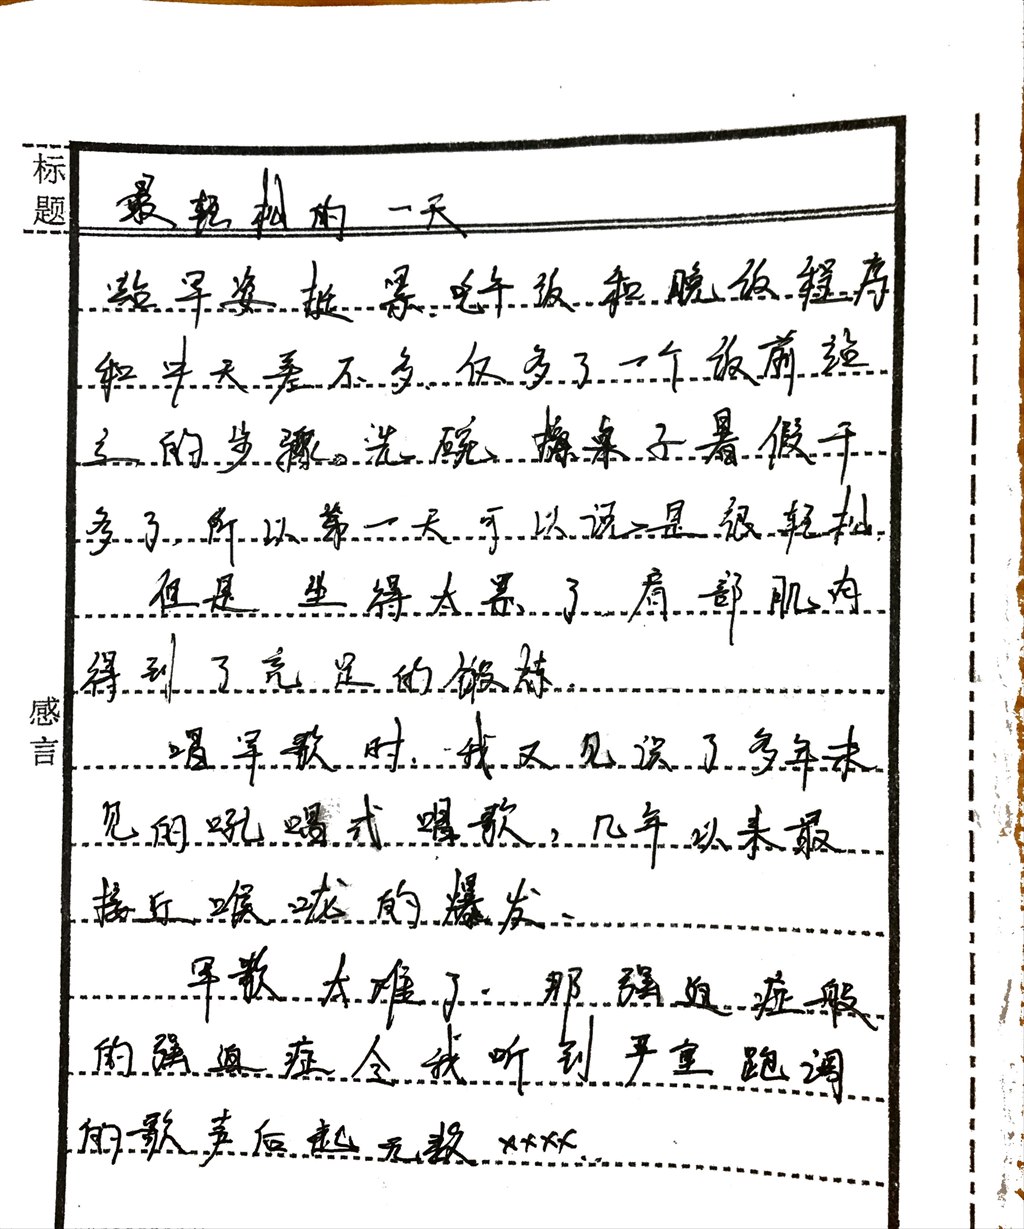 标题
最轻松的一天
站军姿挺累、吃午饭和晚饭程序
和昨天差不多、仅多了一个饭前站
立的步骤。洗碗、擦桌子暑假干
多了，所以第一天可以说是很轻松．
但是坐得太累了．肩部肌肉
得到了充足的锻炼．
感言
唱军歌时．我又见识了多年未
见的吼唱式唱歌，几年以来最
接近喉咙的爆发、
军歌太难了．那强迫症般
的强迫症令我听到严重跑调
的歌声后起无数××××．．